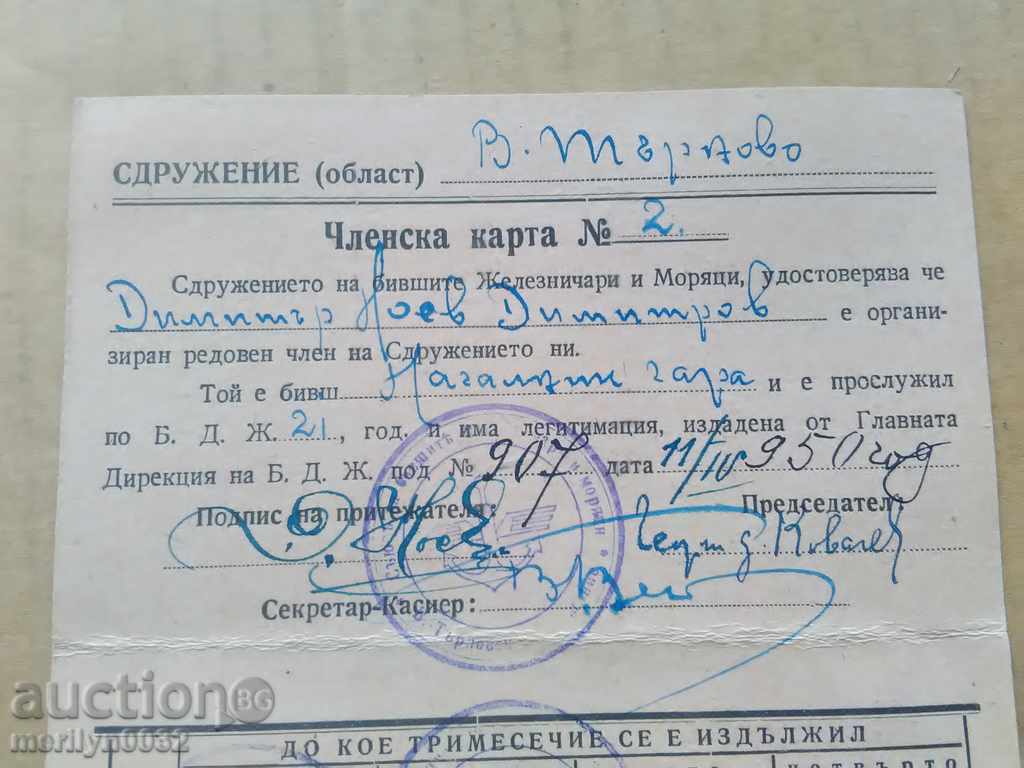 СДРУЖЕНИЕ (област) В. Търново
Членска карта № 2.
Сдружението на бившите Железничари и Моряци, удостоверява че
Димитър Ноев Димитров е органи-
зиран редовен член на Сдружението ни.
Той е бивш Началник гара и е прослужил
по Б. Д. Ж. 21, год. и има легитимация, издадена от Главната
Дирекция на Б. Д. Ж. под № 907 дата 11/III 950 год
Подпис на притежателя: Председател:
Д. Ноев Ковачев
Секретар-Касиер:
auction BG
merilyn0032
ДО КОЕ ТРИМЕСЕЧИЕ СЕ Е ИЗДЪЛЖИЛ